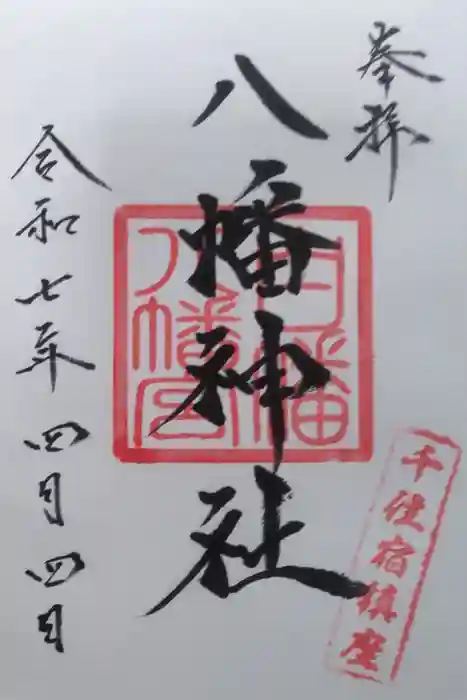 奉拝
八幡神社
令和七年四月四日
千住宿鎮座